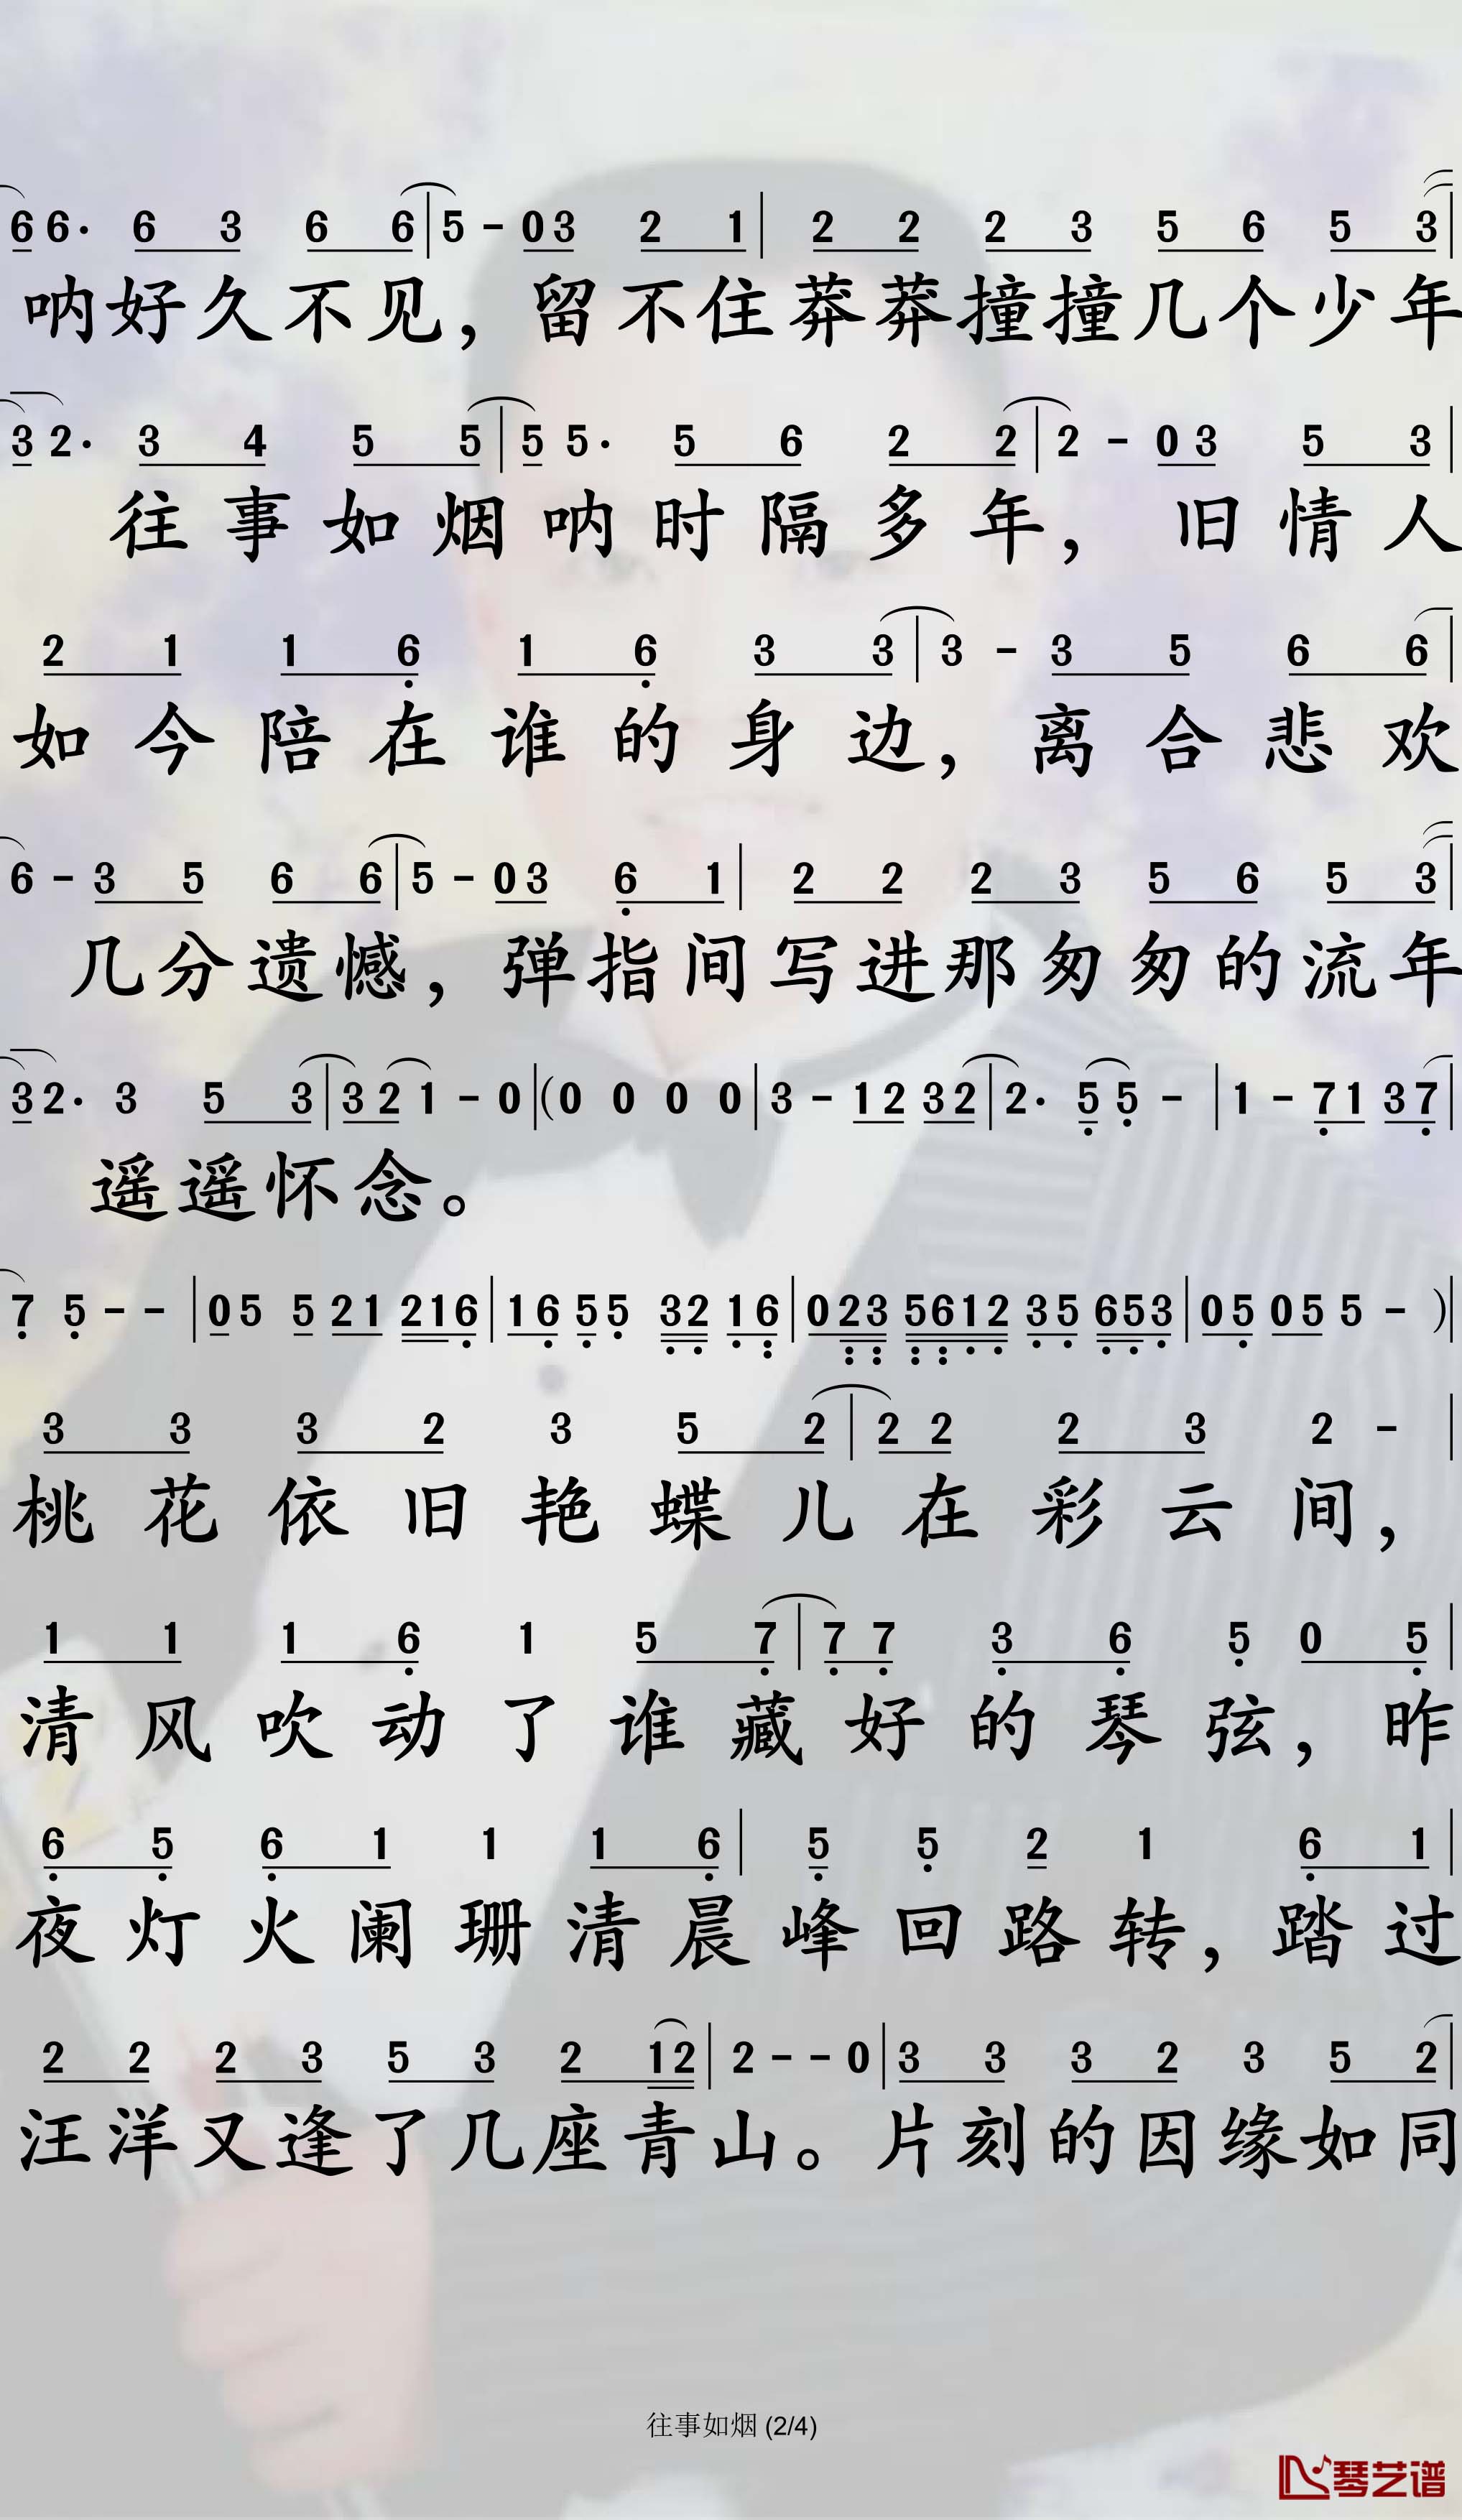 6 6· 6 3 6 6 | 5 - 0 3 2 1 | 2 2 2 3 5 6 5 3 |
呐好久不见，留不住莽莽撞撞几个少年
3 2· 3 4 5 5 | 5 5· 5 6 2 2 | 2 - 0 3 5 3 |
往事如烟呐时隔多年，旧情人
2 1 1 6̣ 1 6̣ 3 3 | 3 - 3 5 6 6 |
如今陪在谁的身边，离合悲欢
6 - 3 5 6 6 | 5 - 0 3 6̣ 1 | 2 2 2 3 5 6 5 3 |
几分遗憾，弹指间写进那匆匆的流年
3 2· 3 5 3 | 3 2 1 - 0 | (0 0 0 0 | 3 - 1 2 3 2 | 2· 5̣ 5̣ - | 1 - 7̣ 1 3 7̣ |
遥遥怀念。
7̣ 5̣ - - | 0 5 5 2 1 2 1 6̣ | 1 6̣ 5̣ 5̣ 3̣ 2̣ 1̣ 6̣̣ | 0 2̣̣ 3̣̣ 5̣̣ 6̣̣ 1̣ 2̣ 3̣ 5̣ 6̣ 5̣ 3̣ | 0 5̣ 0 5 5 - ) |
3 3 3 2 3 5 2 | 2 2 2 3 2 - |
桃花依旧艳蝶儿在彩云间，
1 1 1 6̣ 1 5 7̣ | 7̣ 7̣ 3̣ 6̣ 5̣ 0 5̣ |
清风吹动了谁藏好的琴弦，昨
6̣ 5̣ 6̣ 1 1 1 6̣ | 5̣ 5̣ 2 1 6̣ 1 |
夜灯火阑珊清晨峰回路转，踏过
2 2 2 3 5 3 2 1 2 | 2 - - 0 | 3 3 3 2 3 5 2 |
汪洋又逢了几座青山。片刻的因缘如同
往事如烟 (2/4)
琴艺谱